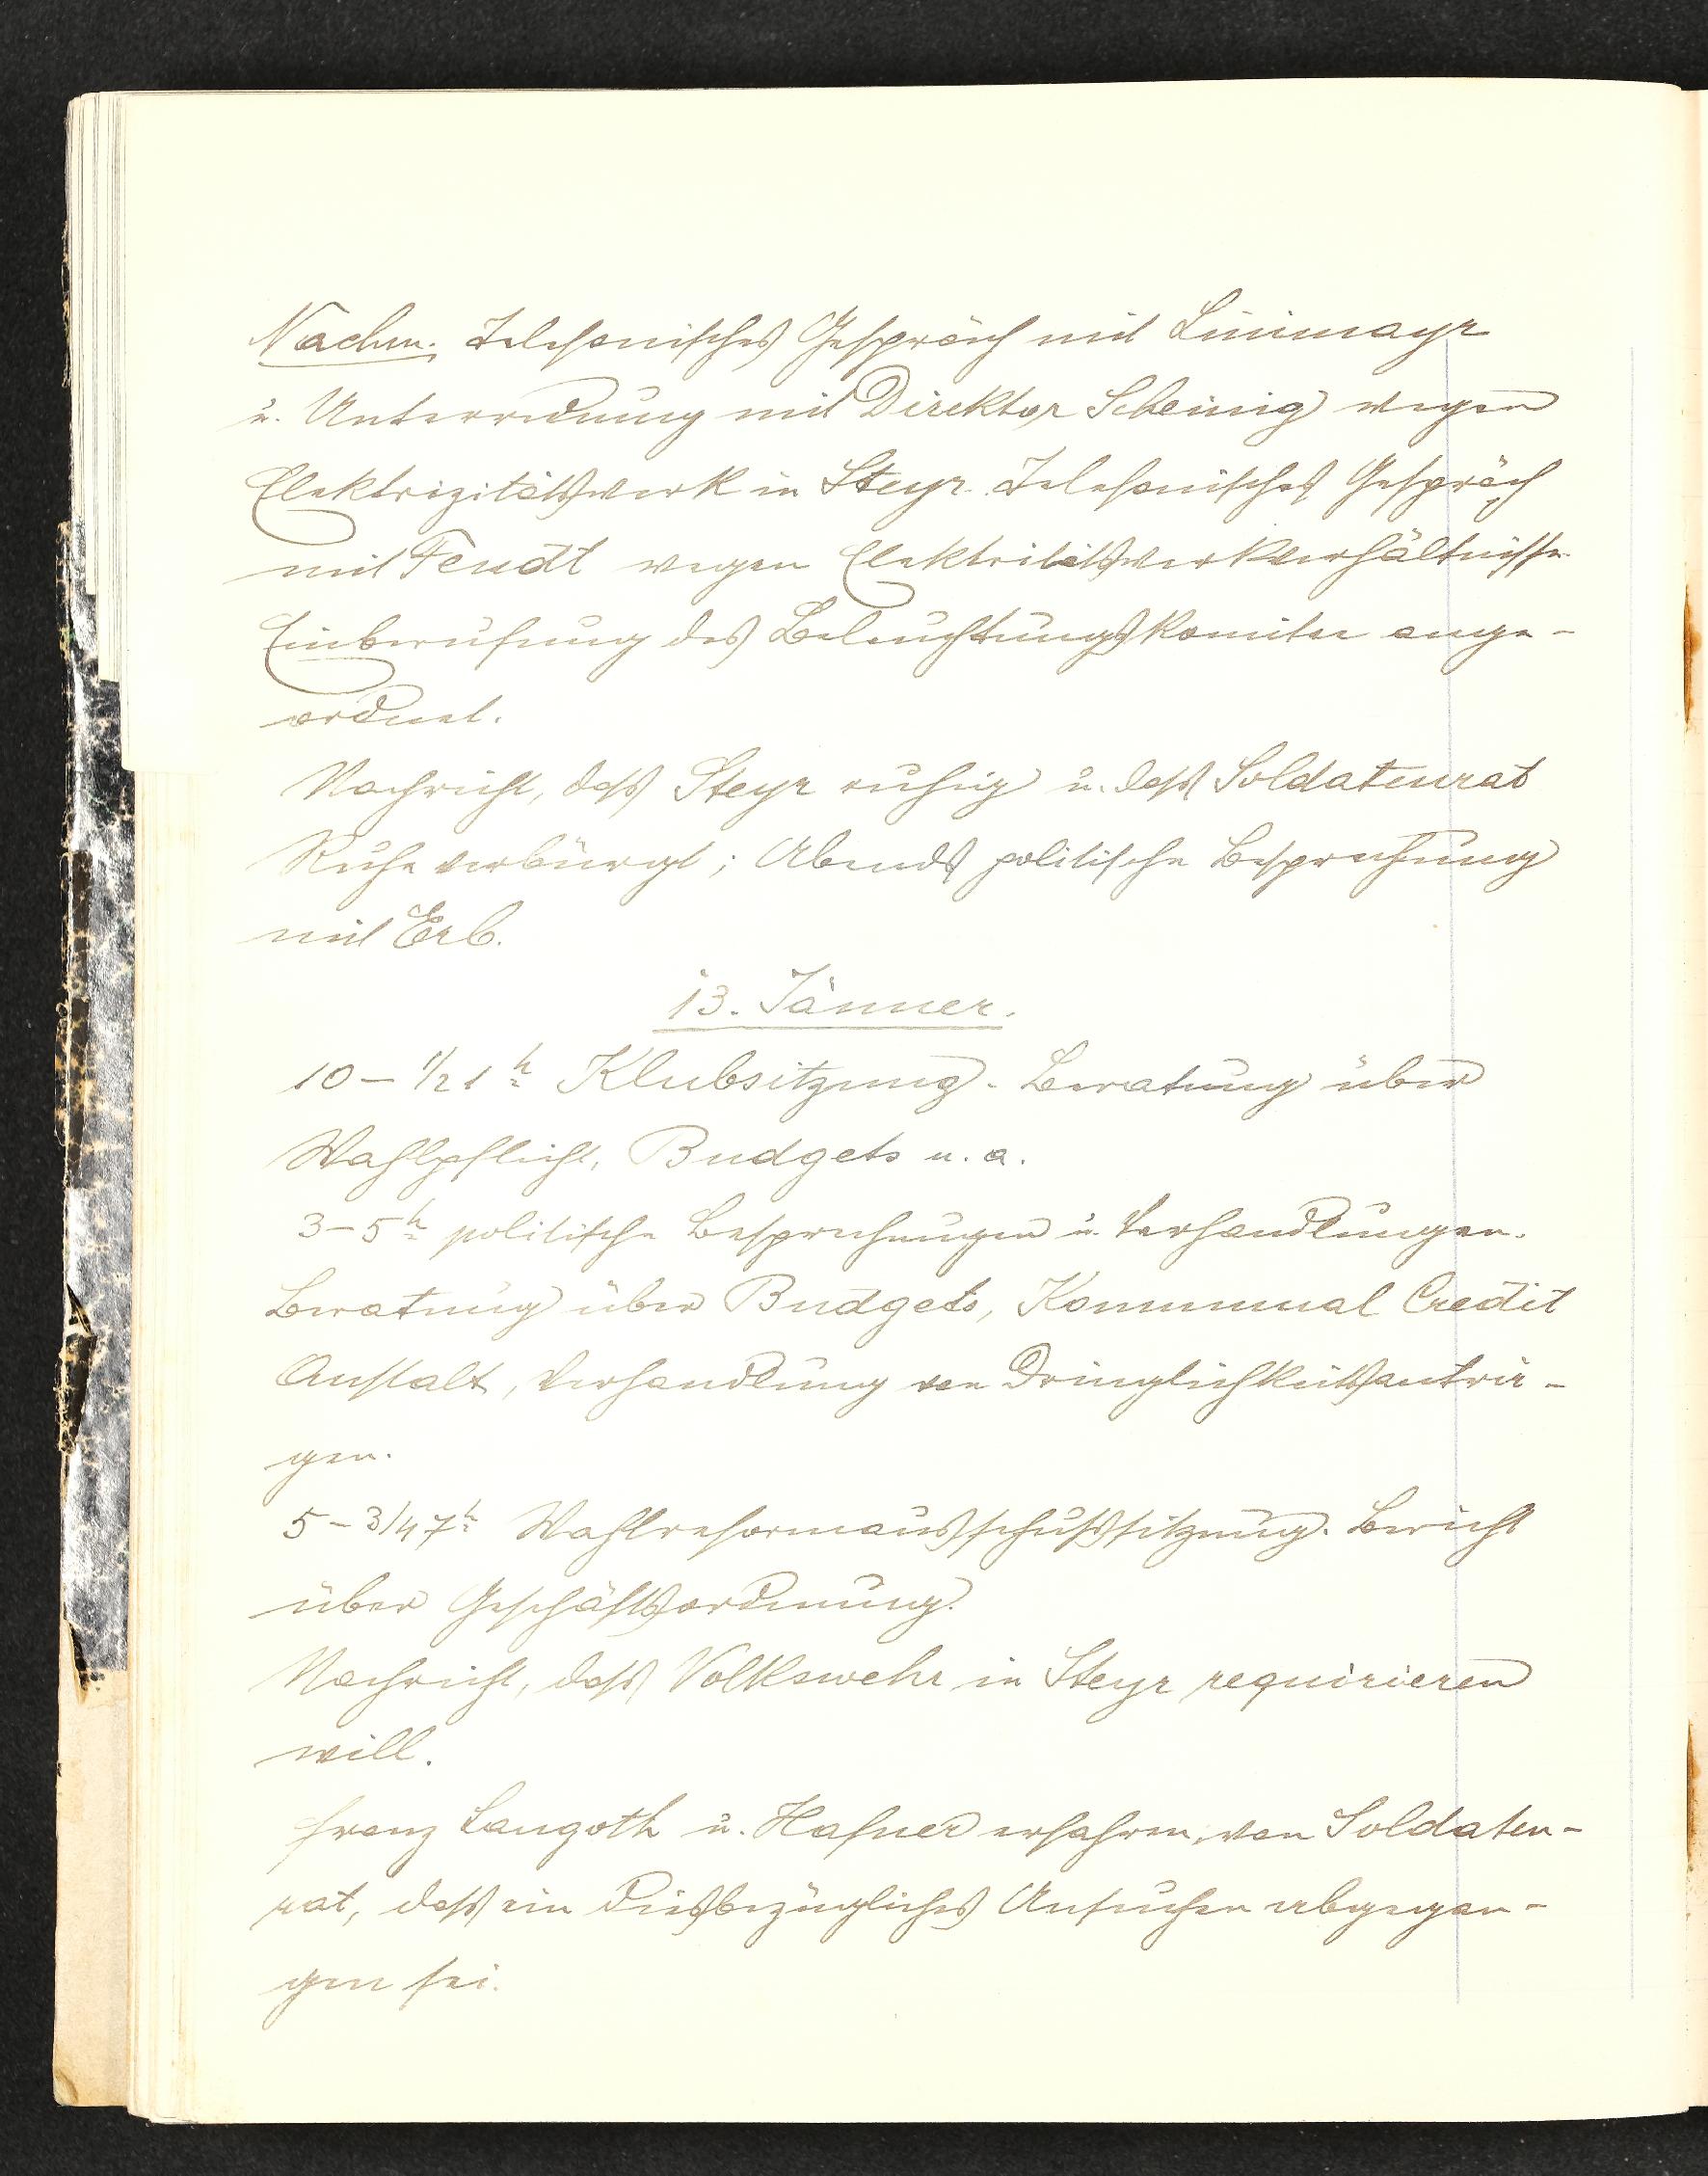 Nachm. Telefonisches Gespräch mit Linimayr
u. Unterredung mit Direktor Scheinig wegen
Elektrizitätswerk in Steyr. Telefonisches Gespräch
mit Fendt wegen Elektritätswerkverhältnisse
Einberufung des Beleuchtungskomitee ange-
ordnet.
Nachricht, dass Steyr ruhig u. dass Soldatenrat
Ruhe verbürgt; Abends politische Besprechung
mit Erb.
13. Jänner.
10 - 1/2 1 h Klubsitzung. Beratung über
Wahlpflicht, Budgets u. a.
3 - 5 h politische Besprechungen u. Verhandlungen.
Beratung über Budgets, Kommunal Credit
Anstalt, Verhandlung von Dringlichkeitsanträ-
gen.
5 - 3/4 7 h Wahlreformausschußsitzung. Bericht
über Geschäftsordnung.
Nachricht, dass Volkswehr in Steyr requirieren
will.
Franz Langoth u. Hafner erfahren, von Soldaten-
rat, dass ein diesbezügliches Ansuchen abgegan-
gen sei.